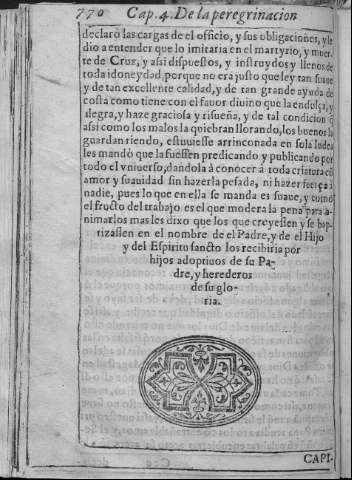 770 Cap. 4. De la peregrinacion
declarò las cargas de el officio, y sus obligaciones, y le
dio a entender que lo imitaria en el martyrio, y muer-
te de Cruz, y asi dispuestos, y instruydos y llenos de
toda idoneydad, porque no era justo que ley tan suaue
y de tan excellente calidad, y de tan grande ayuda de
costa como tiene con el fauor diuino que la endulça, y
alegra, y haze graciosa y risueña, y de tal condicion q̃
asi como los malos la quiebran llorando, los buenos la
guardan riendo, estuuiesse arrinconada en sola Iudea
les mandò que la fuessen predicando y publicando por
todo el vniuerso, dandola à conocer à toda criatura cõ
amor y suauidad sin hazerla pesada, ni hazer fuerça à
nadie, pues lo que en ella se manda es suaue, y como
el fructo del trabajo es el que modera la pena para a-
nimarlos mas les dixo que los que creyessen y se bap-
tizassen en el nombre de el Padre, y de el Hijo
y del Espiritu sancto los recibiria por
hijos adoptiuos de su Pa-
dre, y herederos
de su glo-
ria.
CAPI-